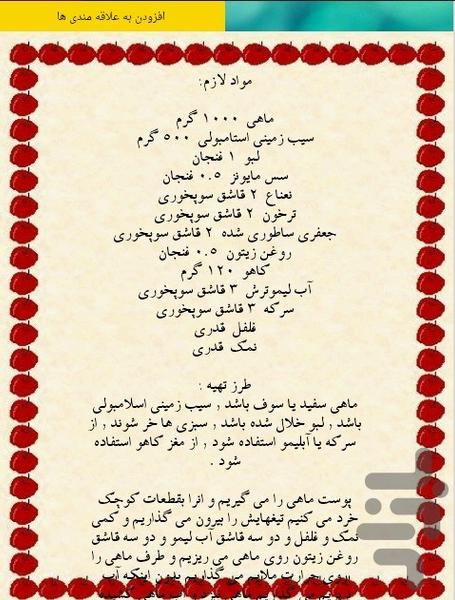 افزودن به علاقه مندی ها
مواد لازم:
ماهی ۱۰۰۰ گرم
سیب زمینی استامبولی ۵۰۰ گرم
لبو ۱ فنجان
سس مایونز ۰.۵ فنجان
نعناع ۲ قاشق سوپخوری
ترخون ۲ قاشق سوپخوری
جعفری ساطوری شده ۲ قاشق سوپخوری
روغن زیتون ۰.۵ فنجان
کاهو ۱۲۰ گرم
آب لیموترش ۳ قاشق سوپخوری
سرکه ۳ قاشق سوپخوری
فلفل قدری
نمک قدری
طرز تهیه :
ماهی سفید یا سوف باشد , سیب زمینی اسلامبولی
باشد , لبو خلال شده باشد , سبزی ها خر شوند , از
سرکه یا آبلیمو استفاده شود , از مغز کاهو استفاده
شود .
پوست ماهی را می گیریم و انرا بقطعات کوچک
خرد می کنیم تیغهایش را بیرون می گذاریم و کمی
نمک و فلفل و دو سه قاشق آب لیمو و دو سه قاشق
روغن زیتون روی ماهی می ریزیم و ظرف ماهی را
روی حرارت ملایم می گذاریم بدون اینکه آب
بازار